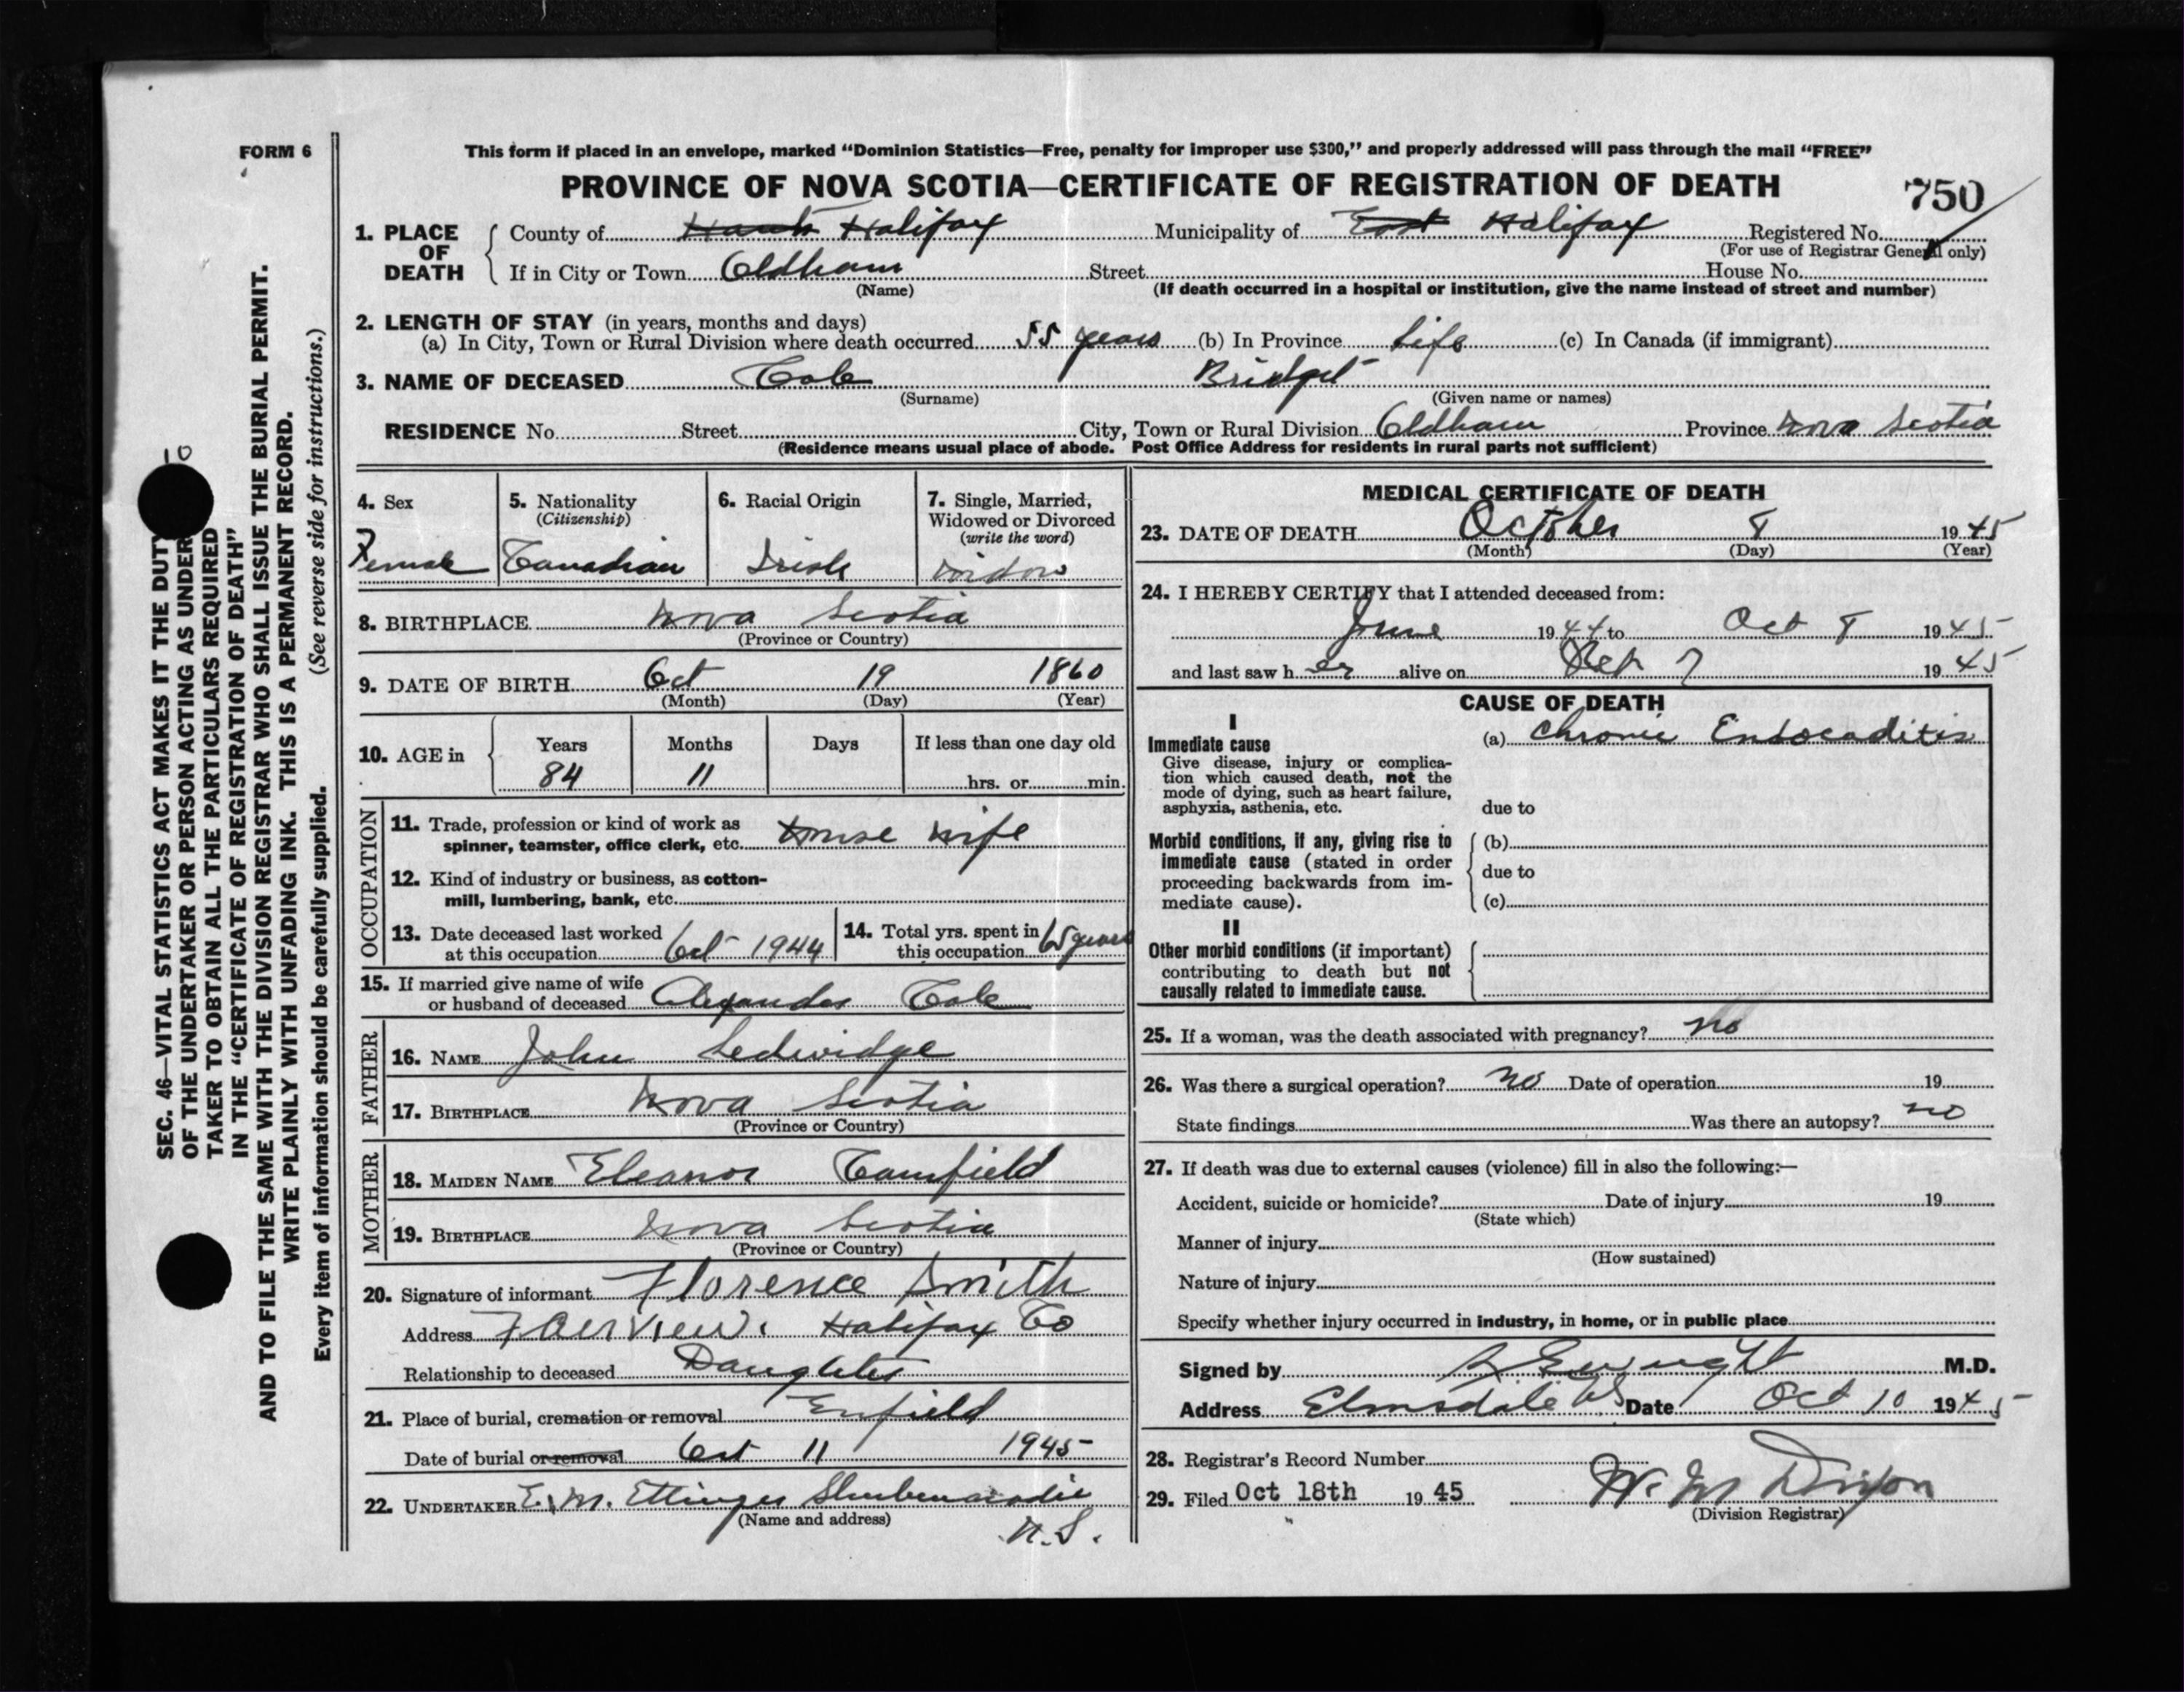 FORM 6
This form if placed in an envelope, marked “Dominion Statistics—Free, penalty for improper use $300,” and properly addressed will pass through the mail “FREE”
PROVINCE OF NOVA SCOTIA—CERTIFICATE OF REGISTRATION OF DEATH
750
1. PLACE OF DEATH
County of Hants Halifax Municipality of East Halifax Registered No.
(For use of Registrar General only)
If in City or Town Oldham Street House No.
(Name) (If death occurred in a hospital or institution, give the name instead of street and number)
2. LENGTH OF STAY (in years, months and days)
(a) In City, Town or Rural Division where death occurred 55 years (b) In Province Life (c) In Canada (if immigrant)
3. NAME OF DECEASED Cole Bridget
(Surname) (Given name or names)
RESIDENCE No. Street City, Town or Rural Division Oldham Province Nova Scotia
(Residence means usual place of abode. Post Office Address for residents in rural parts not sufficient)
4. Sex
Female
5. Nationality
(Citizenship)
Canadian
6. Racial Origin
Irish
7. Single, Married,
Widowed or Divorced
(write the word)
Widow
8. BIRTHPLACE Nova Scotia
(Province or Country)
9. DATE OF BIRTH Oct 19 1860
(Month) (Day) (Year)
10. AGE in
Years Months Days If less than one day old
84 11 hrs. or min.
OCCUPATION
11. Trade, profession or kind of work as
spinner, teamster, office clerk, etc. House wife
12. Kind of industry or business, as cotton-
mill, lumbering, bank, etc.
13. Date deceased last worked
at this occupation Oct 1944
14. Total yrs. spent in
this occupation 65 years
15. If married give name of wife
or husband of deceased Alexander Cole
FATHER
16. NAME John Ledwidge
17. BIRTHPLACE Nova Scotia
(Province or Country)
MOTHER
18. MAIDEN NAME Eleanor Camfield
19. BIRTHPLACE Nova Scotia
(Province or Country)
20. Signature of informant Florence Smith
Address Fairview. Halifax Co
Relationship to deceased Daughter
21. Place of burial, cremation or removal Enfield
Date of burial or removal Oct 11 1945
22. UNDERTAKER E. M. Ettinger Shubenacadie
(Name and address)
N.S.
MEDICAL CERTIFICATE OF DEATH
23. DATE OF DEATH October 8 1945
(Month) (Day) (Year)
24. I HEREBY CERTIFY that I attended deceased from:
June 1944 to Oct 8 1945
and last saw her alive on 7 1945
CAUSE OF DEATH
I
Immediate cause
Give disease, injury or complica-
tion which caused death, not the
mode of dying, such as heart failure,
asphyxia, asthenia, etc.
(a) Chronic Endocaditis
due to
Morbid conditions, if any, giving rise to
immediate cause (stated in order
proceeding backwards from im-
mediate cause).
(b)
due to
(c)
II
Other morbid conditions (if important)
contributing to death but not
causally related to immediate cause.
25. If a woman, was the death associated with pregnancy? no
26. Was there a surgical operation? no Date of operation 19
State findings Was there an autopsy? no
27. If death was due to external causes (violence) fill in also the following:—
Accident, suicide or homicide? Date of injury 19
(State which)
Manner of injury
(How sustained)
Nature of injury
Specify whether injury occurred in industry, in home, or in public place
Signed by M.D.
Address Elmsdale NS Date Oct 10 1945
28. Registrar's Record Number
29. Filed Oct 18th 19 45
(Division Registrar)
10
SEC. 46—VITAL STATISTICS ACT MAKES IT THE DUTY
OF THE UNDERTAKER OR PERSON ACTING AS UNDER
TAKER TO OBTAIN ALL THE PARTICULARS REQUIRED
IN THE “CERTIFICATE OF REGISTRATION OF DEATH”
AND TO FILE THE SAME WITH THE DIVISION REGISTRAR WHO SHALL ISSUE THE BURIAL PERMIT.
WRITE PLAINLY WITH UNFADING INK. THIS IS A PERMANENT RECORD.
Every item of information should be carefully supplied. (See reverse side for instructions.)